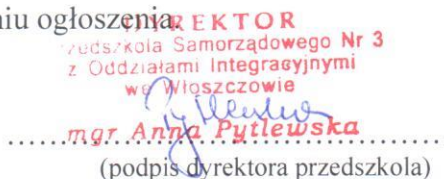 niu ogłoszenia.
DYREKTOR
Przedszkola Samorządowego Nr 3
z Oddziałami Integracyjnymi
we Włoszczowie
mgr Anna Pytlewska
(podpis dyrektora przedszkola)